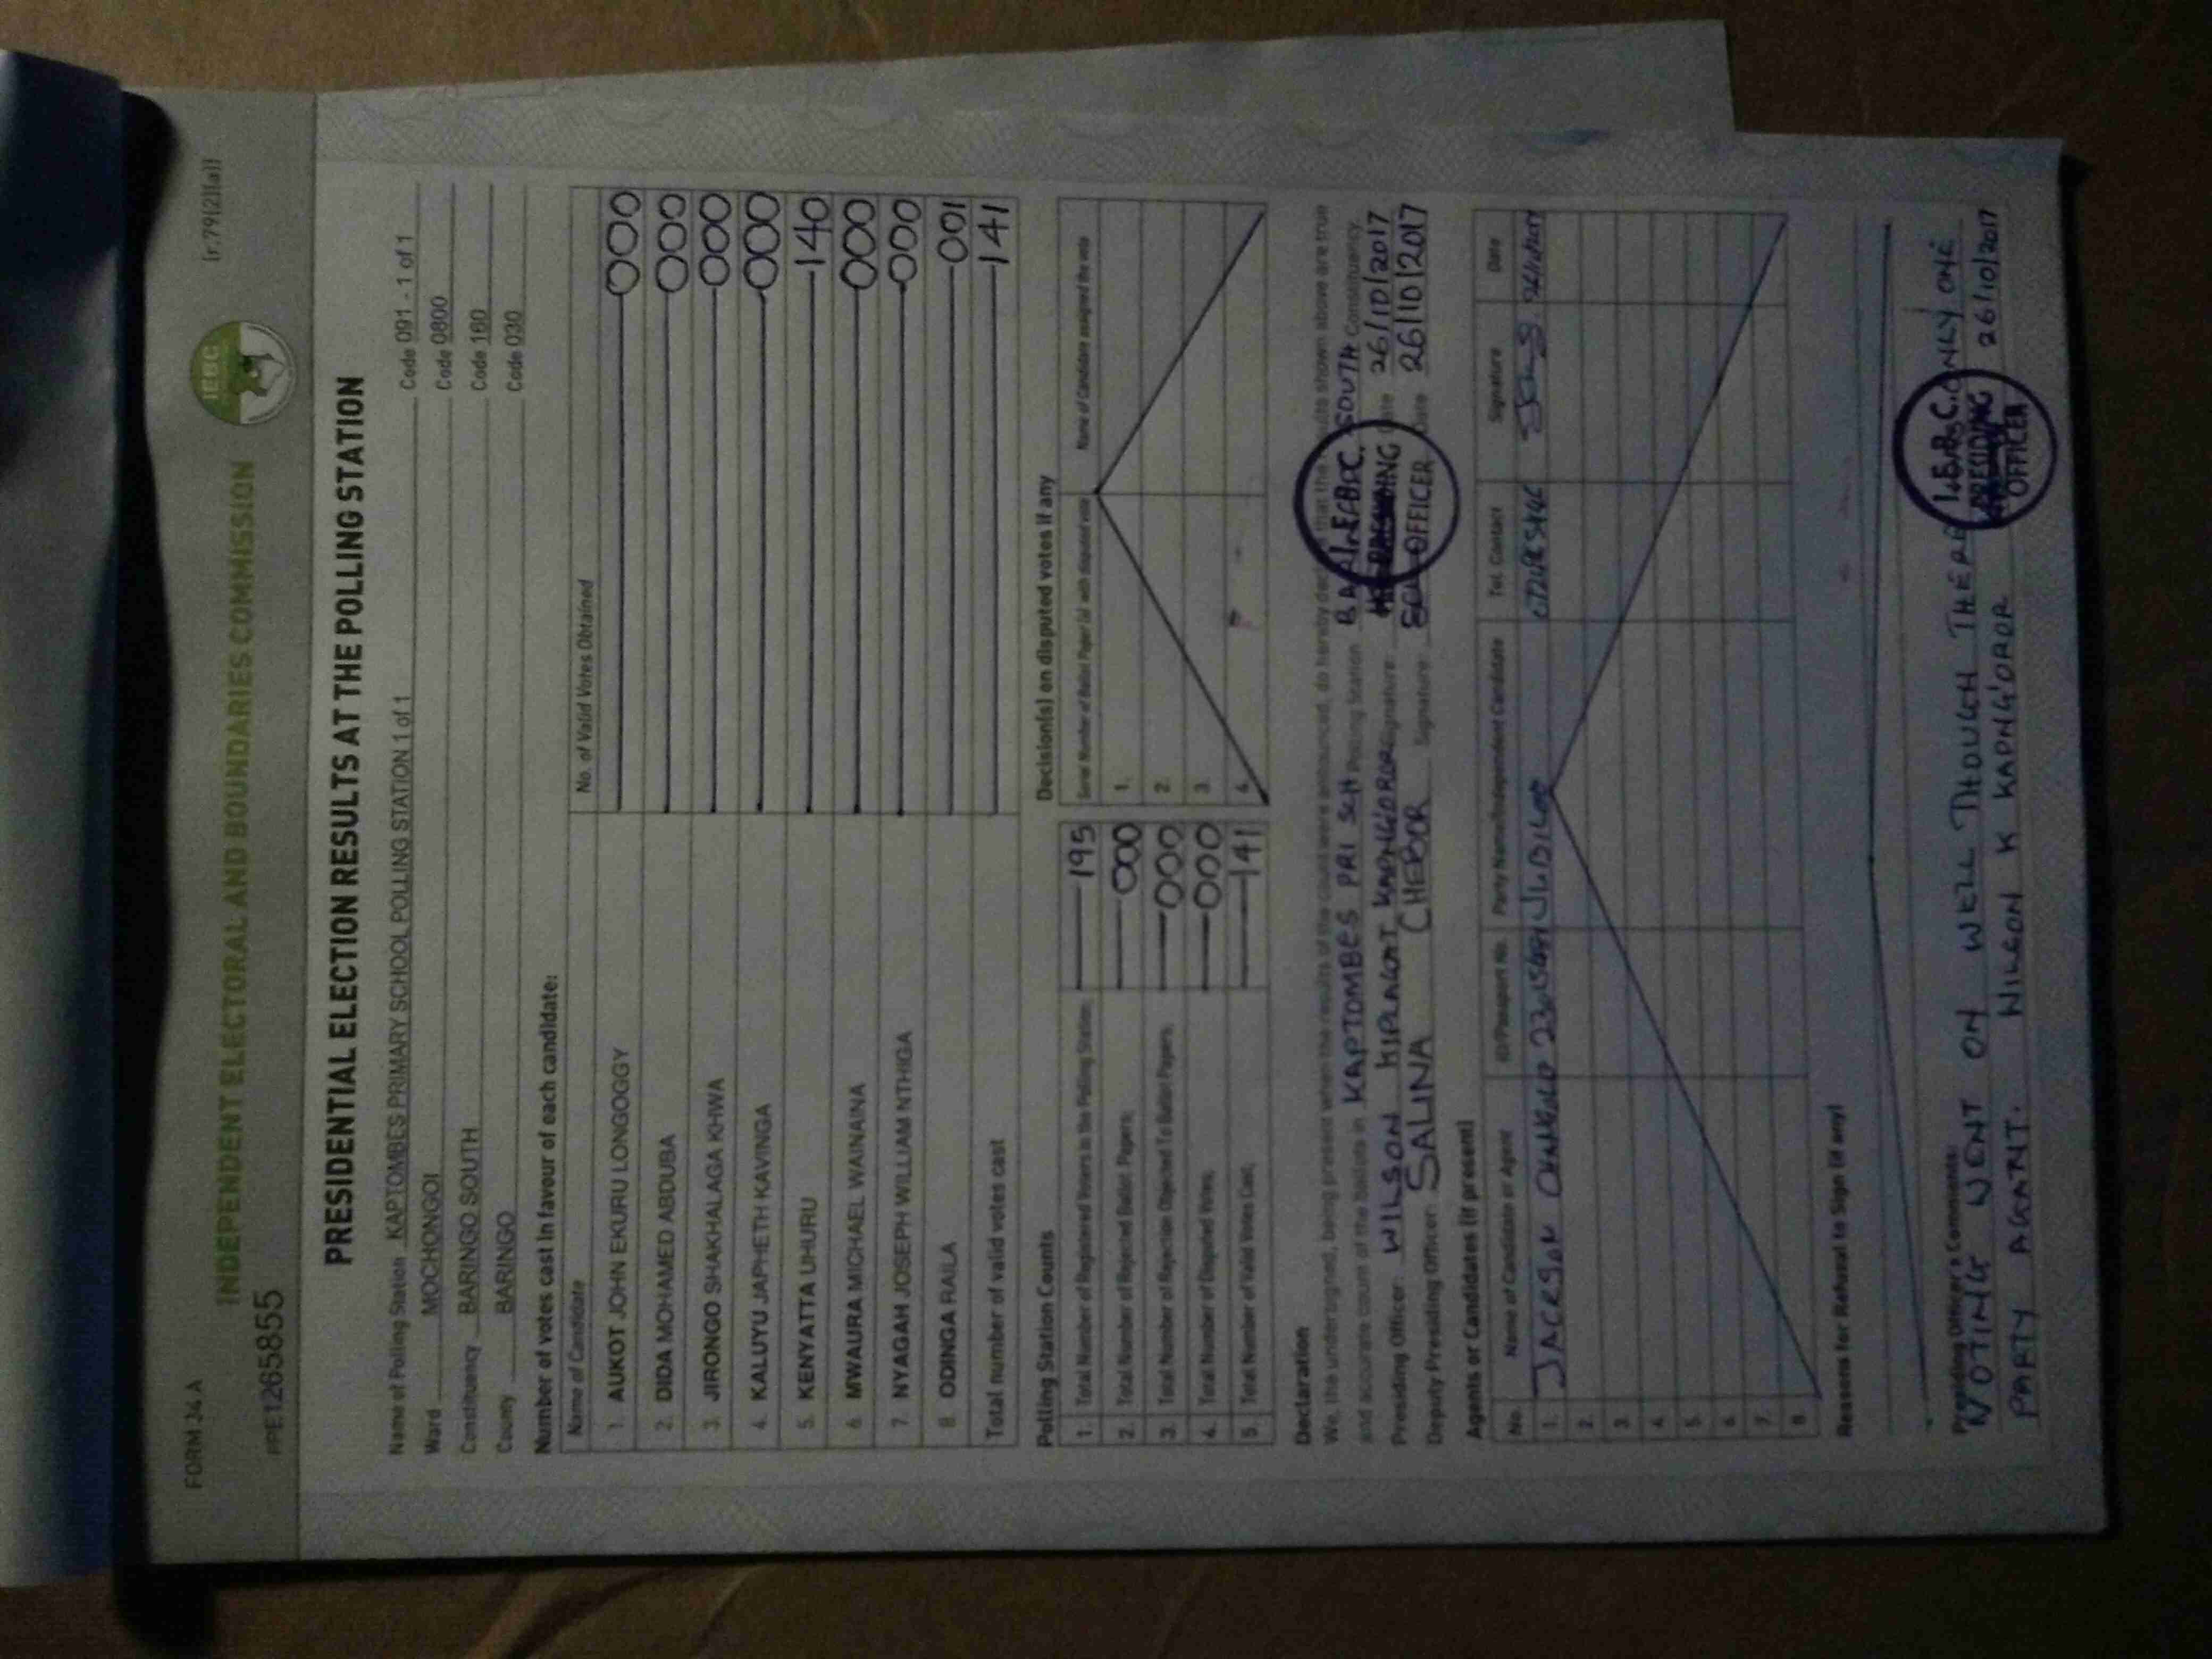 FORM 34A
[r.79(2)(a)]
INDEPENDENT ELECTORAL AND BOUNDARIES COMMISSION
IEBC
PPE1265855
PRESIDENTIAL ELECTION RESULTS AT THE POLLING STATION
Name of Polling Station KAPTOMBES PRIMARY SCHOOL POLLING STATION 1 of 1 Code 091 - 1 of 1
Ward MOCHONGOI Code 0800
Constituency BARINGO SOUTH Code 160
County BARINGO Code 030
Number of votes cast in favour of each candidate:
Name of Candidate No. of Valid Votes Obtained
1. AUKOT JOHN EKURU LONGOGGY 000
2. DIDA MOHAMED ABDUBA 000
3. JIRONGO SHAKHALAGA KHWA 000
4. KALUYU JAPHETH KAVINGA 000
5. KENYATTA UHURU 140
6. MWAURA MICHAEL WAINAINA 000
7. NYAGAH JOSEPH WILLIAM NTHIGA 000
8. ODINGA RAILA 001
Total number of valid votes cast 141
Polling Station Counts
1. Total Number of Registered Voters in the Polling Station 195
2. Total Number of Rejected Ballot Papers 000
3. Total Number of Rejection Objected To Ballot Papers 000
4. Total Number of Disputed Votes 000
5. Total Number of Valid Votes Cast 141
Decision(s) on disputed votes if any
Serial Number of Ballot Paper (s) with disputed vote Name of Candidate assigned the vote
1.
2.
3.
4.
Declaration
We, the undersigned, being present when the results of the count were announced, do hereby declare that the results shown above are true
and accurate count of the ballots in KAPTOMBES PRI SCH Polling Station SOUTH Constituency.
Presiding Officer: WILSON KIPLAGAT KAPNG'OROR Signature: Date 26/10/2017
Deputy Presiding Officer: SALINA CHEBOR Signature: Date 26/10/2017
I.E.B.C. PRESIDING OFFICER
Agents or Candidates (if present)
No. Name of Candidate or Agent ID/Passport No. Party Name/Independent Candidate Tel. Contact Signature Date
1. JACKSON JUBILEE
2.
3.
4.
5.
6.
7.
8.
Reasons for Refusal to Sign (if any)
Presiding Officer's Comments:
VOTING WENT ON WELL THOUGH THERE ONLY ONE
PARTY AGENT. WILSON K KAPNG'OROR 26/10/2017
I.E.B.C. PRESIDING OFFICER